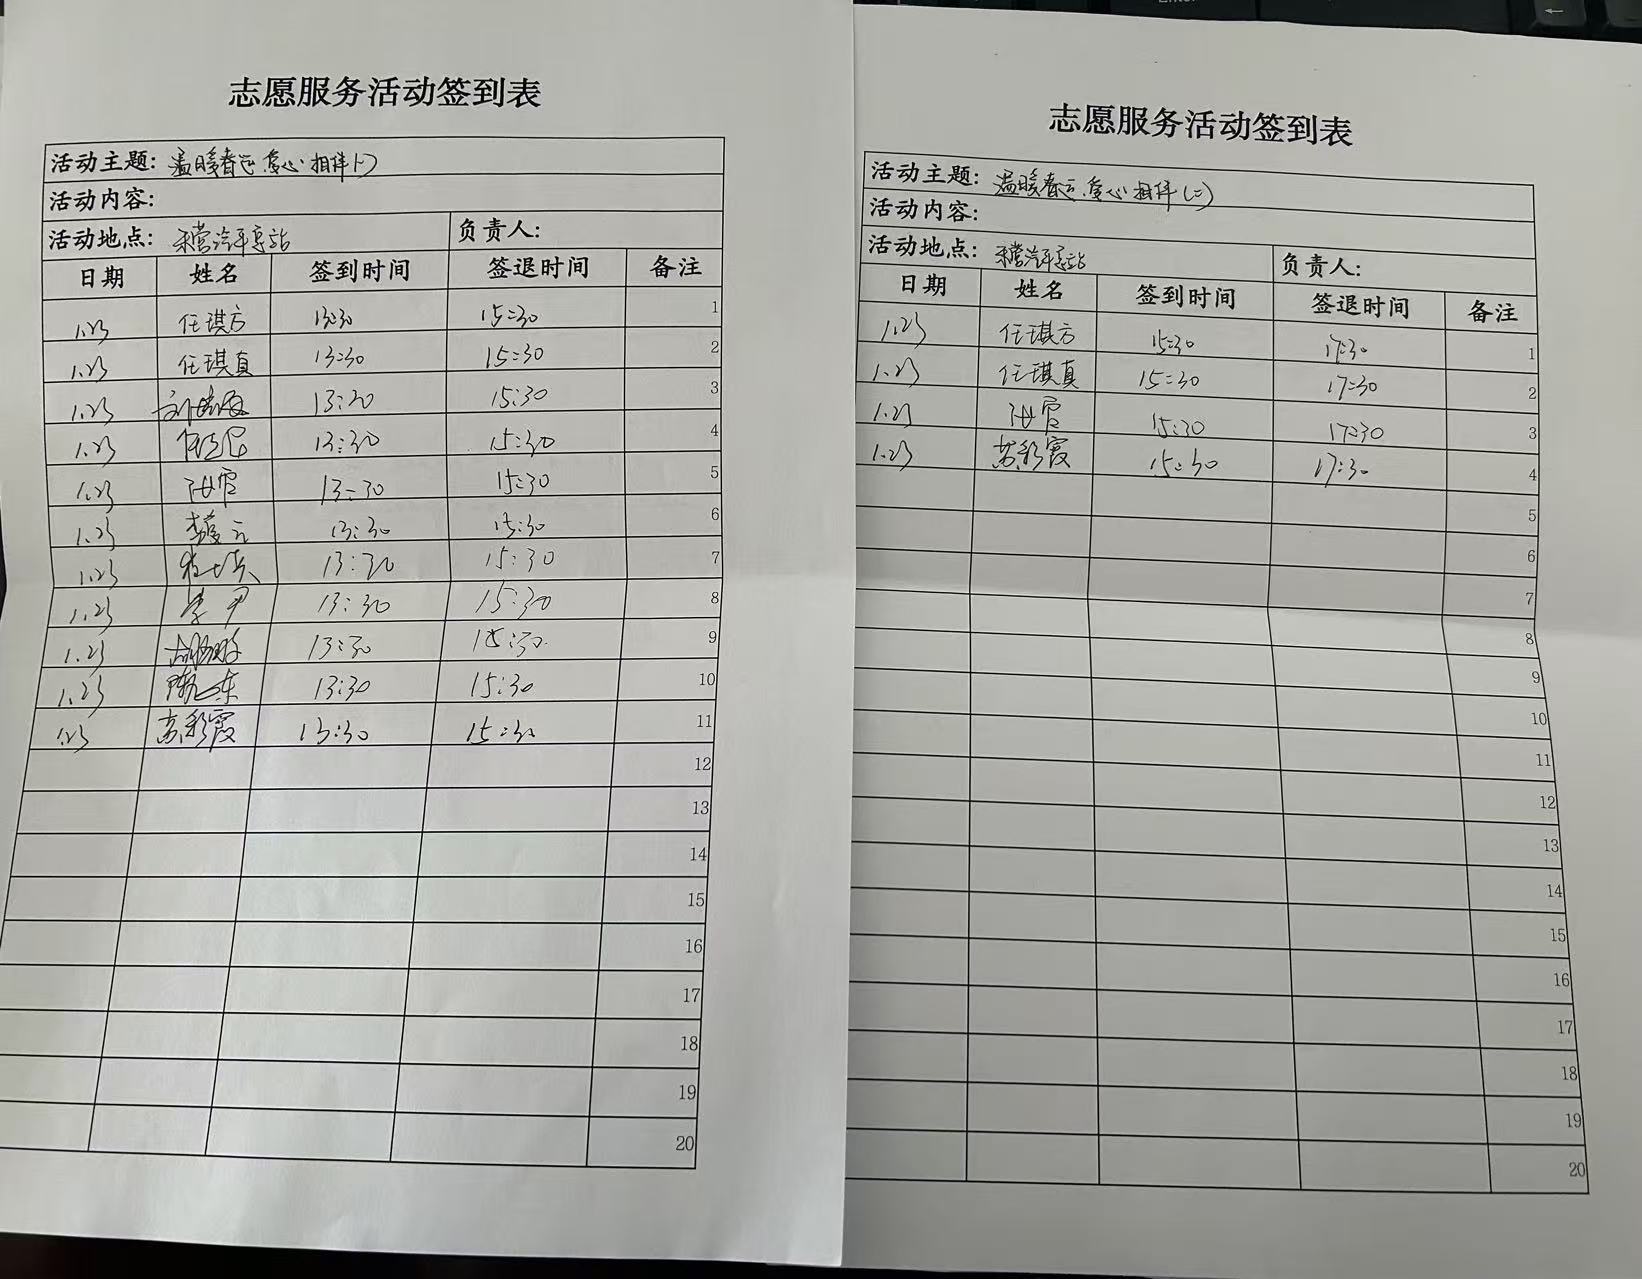 志愿服务活动签到表
活动主题: 温暖春运.爱心相伴(一)
活动内容:
活动地点: 东营汽车总站 负责人:
日期 姓名 签到时间 签退时间 备注
1.23 任琪方 13:30 15:30 1
1.23 任琪真 13:30 15:30 2
1.23 13:30 15:30 3
1.23 13:30 15:30 4
1.23 13:30 15:30 5
1.23 13:30 15:30 6
1.23 13:30 15:30 7
1.23 李尹 13:30 15:30 8
1.23 13:30 15:30 9
1.23 13:30 15:30 10
1.23 苏彩霞 13:30 15:30 11
12
13
14
15
16
17
18
19
20
志愿服务活动签到表
活动主题: 温暖春运.爱心相伴(二)
活动内容:
活动地点: 东营汽车总站 负责人:
日期 姓名 签到时间 签退时间 备注
1.23 任琪方 15:30 17:30 1
1.23 任琪真 15:30 17:30 2
1.23 15:30 17:30 3
1.23 苏彩霞 15:30 17:30 4
5
6
7
8
9
10
11
12
13
14
15
16
17
18
19
20
Enter